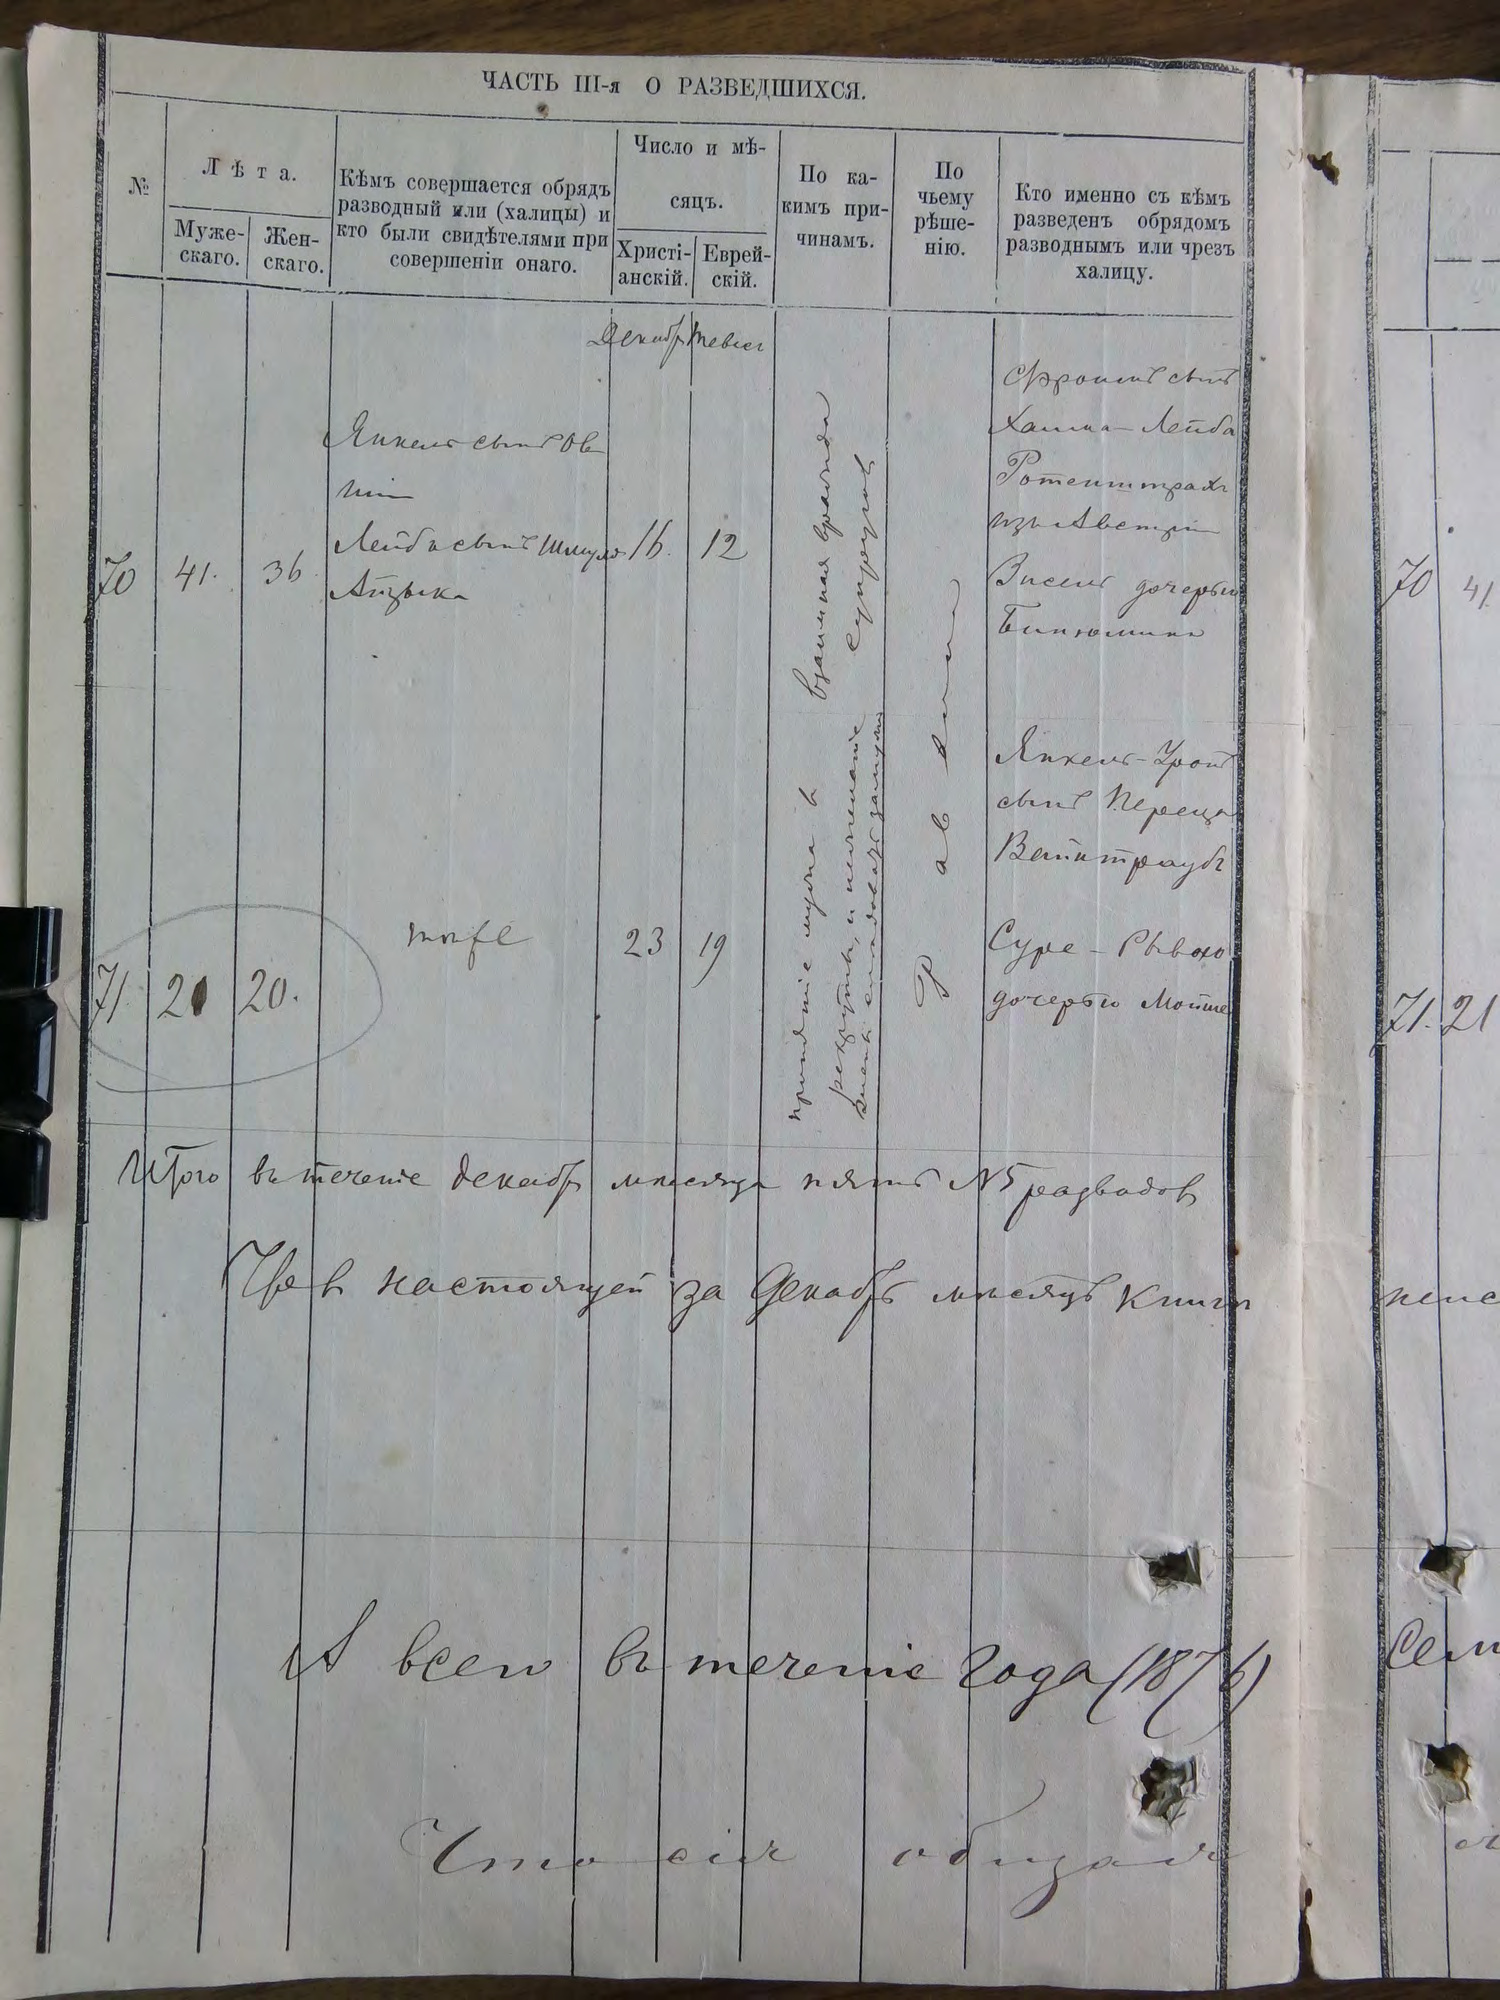 ЧАСТЬ III-я О РАЗВЕДШИХСЯ.
№
Лѣта.
Муже-
скаго.
Жен-
скаго.
Кѣмъ совершается обрядъ
разводный или (халицы) и
кто были свидѣтелями при
совершеніи онаго.
Число и мѣ-
сяцъ.
Христі-
анскій.
Еврей-
скій.
По ка-
кимъ при-
чинамъ.
По
чьему
рѣше-
нію.
Кто именно съ кѣмъ
разведенъ обрядомъ
разводнымъ или чрезъ
халицу.
Декабр
70
41.
36
Янкель сынъ
Лейба сынъ Шмуля
16.
12
взаимная вражда
супруговъ
Раввина
сынъ
Хаима-Лейба
Ротенштрахъ
изъ Австріи
дочерью
Бинюмина
71.
21
20.
тоже
23
19
принятіе мужа в
рекруты, и нежеланіе
жены
Янкель-
сынъ Переца
Вайнтраубъ
Суре-Рывою
дочерью Мойше
Итого въ теченіе декабр мѣсяца пять №5 разводов
Что в настоящей за Декабрь мѣсяцъ книги
А всего въ теченіе года (1876)
Что сія общая
70
41.
71.
21